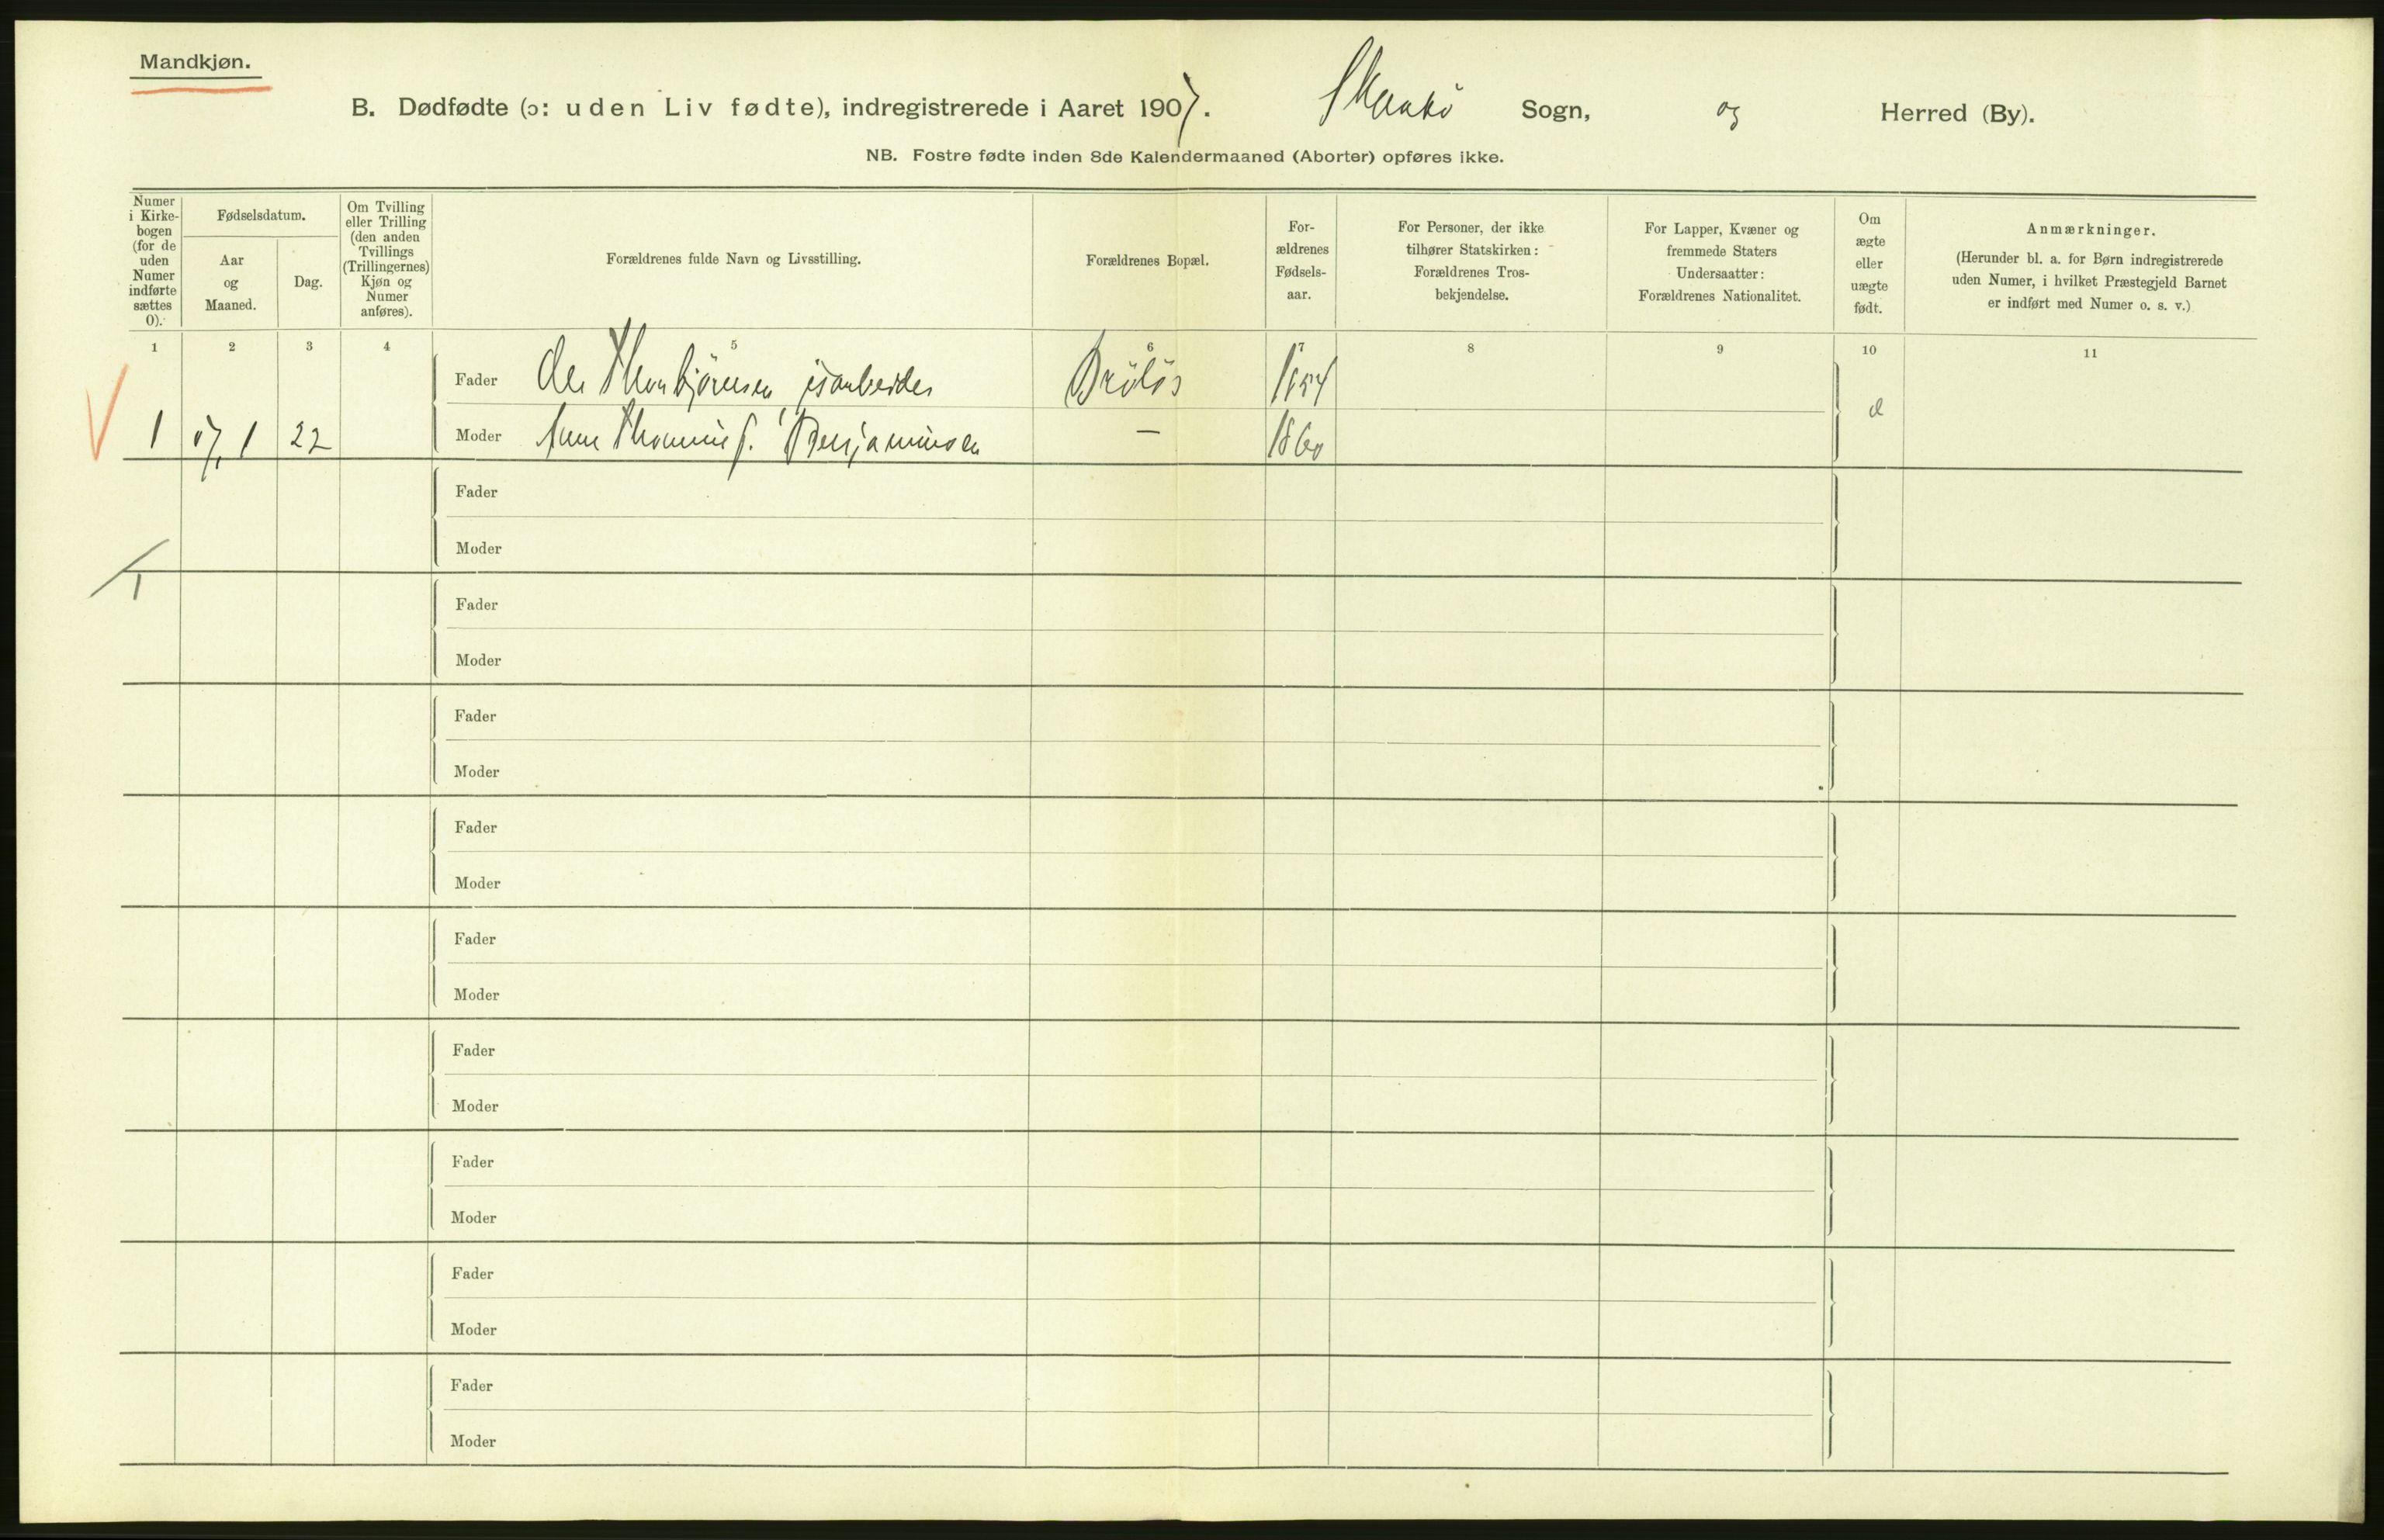 Mandkjøn.
B. Dødfødte (ɔ: uden Liv fødte), indregistrerede i Aaret 1907. Skaatø Sogn, og Herred (By).
NB. Fostre fødte inden 8de Kalendermaaned (Aborter) opføres ikke.
Numer i Kirke-bogen (for de uden Numer indførte sættes 0).
Fødselsdatum.
Aar og Maaned.
Dag.
Om Tvilling eller Trilling (den anden Tvillings (Trillingernes) Kjøn og Numer anføres).
Forældrenes fulde Navn og Livsstilling.
Forældrenes Bopæl.
For-ældrenes Fødsels-aar.
For Personer, der ikke tilhører Statskirken: Forældrenes Tros-bekjendelse.
For Lapper, Kvæner og fremmede Staters Undersaatter: Forældrenes Nationalitet.
Om ægte eller uægte født.
Anmærkninger.
(Herunder bl. a. for Børn indregistrerede uden Numer, i hvilket Præstegjeld Barnet er indført med Numer o. s. v.)
1 2 3 4 5 6 7 8 9 10 11
Fader Ole Thorbjørnsen isarbeider
1 07, 1 22 Moder Anne Thomine f. Benjaminsen — 1860
Fader
Moder
Fader
Moder
Fader
Moder
Fader
Moder
Fader
Moder
Fader
Moder
Fader
Moder
Fader
Moder
Fader
Moder